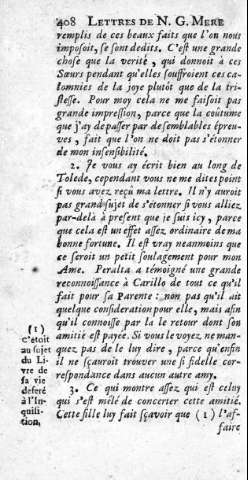 408 LETTRES DE N. G. MERE
remplis de ces beaux faits que l'on nous
imposoit, se sont dedits. C'est une grande
chose que la verité, qui donnoit à ces
Sœurs pendant qu'elles souffroient ces ca-
lomnies de la joye plutôt que de la tri-
stesse. Pour moy cela ne faisoit pas
grande impression, parce que la coûtume
que j'ay de passer par de semblables épreu-
ves, fait que l'on ne doit pas s'étonner
de mon insensibilité.
2. Je vous ay écrit bien au long de
Tolede, cependant vous ne me dites point
si vous avez reçû ma lettre. Il n'y auroit
pas grand sujet de s'étonner si vous alliez
par-delà à present que je suis icy, parce
que cela est un effet assez ordinaire de ma
bonne fortune. Il est vray neanmoins que
ce seroit un petit soulagement pour mon
Ame. Peralta a témoigné une grande
reconnoissance à Carillo de tout ce qu'il
fait pour sa Parente: non pas qu'il ait
quelque consideration pour elle, mais afin
qu'il connoisse par la le retour dont son
amitié est payée. Si vous le voyez, ne man-
quez pas de le luy dire, parce qu'enfin
il ne sçauroit trouver une si fidelle cor-
respondance dans aucun autre amy.
3. Ce qui montre assez qui est celuy
qui s'est mêlé de concerter cette amitié.
Cette fille luy fait sçavoir que (1) l'af-
faire
(1)
C'étoit
au sujet
du Li-
vre de
sa vie
deferé
à l'In-
quisi-
tion.